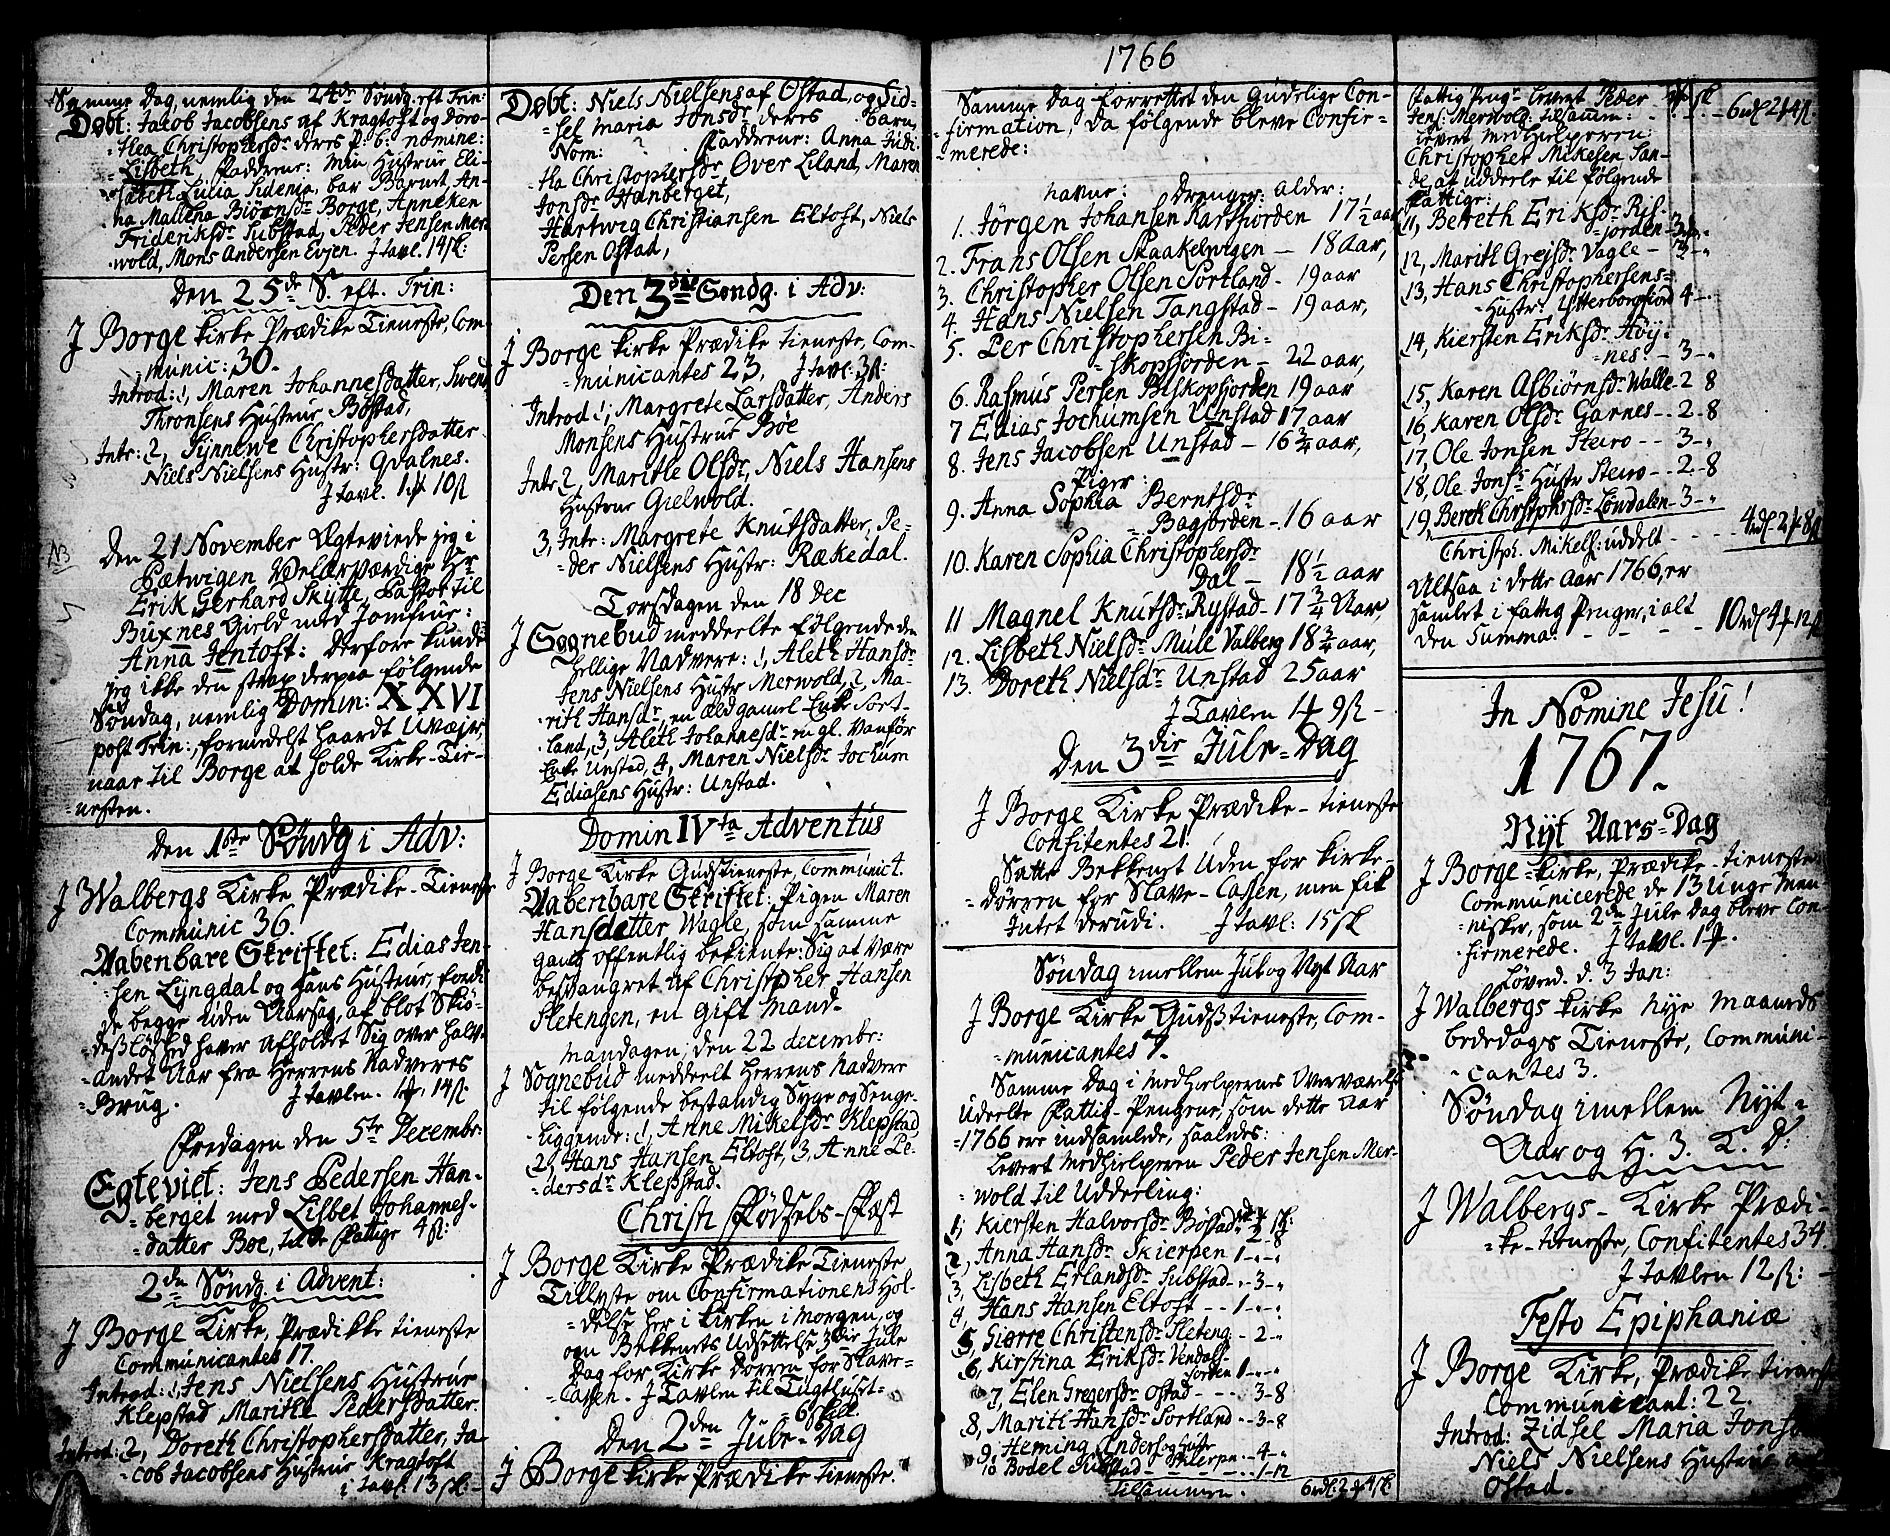 1766
Samme Dag, nemlig den 24de Søndg. eft Trin:
Døbt: Jacob Jacobsens af Kragtoft og Doro-
-thea Christophersdr deres P. b: nomine:
Lisbeth, Fadderne: Min Hustrue Eli-
sabeth Lucia Sidenia, bar Barnet, An-
na Mallena Biörnsdr Borge, Anneken
Frideriksdr Substad, Peder Jensen Mer-
wold, Mons Andersen Evjen. J tavl. 14 sk:
Den 25de S. eft. Trin:
J Borge Kirke Prædike Tieneste, Com-
munic: 30.
Introd: 1, Maren Johannesdatter, Swend
Thronsens Hustrue Böstad,
Intr: 2, Synnewe Christophersdatter
Niels Nielsens Hustr: Qvalnes.
J tavl. 1 10 sk
NB
Den 21 November Ægteviede jeg i
Pætwigen Velærværdige Hr
Erik Gerhard Skytte, Pastor til
Buxnes Gield med Jomfrue:
Anna Jentoft: Derfore kunde
jeg ikke den strax derpaa følgende
Søndag, nemlig Domin: XXVI
post Trin:, formedelst haardt Uvæjr,
naar til Borge at holde Kirke-Tie-
-nesten.
Den 1ste Söndg i Adv:
J Walbergs Kirke, Prædike-Tieneste
Communic 36.
Aabenbare Skriftet: Edias Jen-
sen Lyngdal og hans Hustrue, fordi
de begge uden Aarsag, af blot Skiö-
-desløshed haver afholdet Sig over halv-
-andet Aar fra Herrens Nadveres
-Brug. J tavlen. 14 sk
Fredagen den 5te Decembr:
Egteviet: Jens Pedersen Han-
-berget med Lisbet Johannes-
-datter Boe, til de Fattige 4 sk:
2den Søndg. i Advent:
J Borge Kirke, Prædikke tieneste
Communicantes 17.
Introd: 1, Jens Nielsens Hustrue
Klepstad Marithe Pedersdatter.
Introd: 2, Doreth Christophersdatter, Ja-
cob Jacobsens Hustrue Kragtoft
i tavl: 13 sk:
Døbt: Niels Nielsens af Ostad, og Sid-
-sel Maria Jonsdr deres Barn,
Nom: ? Fadderne: Anna Judi-
-tha Christophersdr Over Liland, Maren
Jonsdr Hanberget,
Hartwig Christiansen Eltoft, Niels
Persen Ostad,
Den 3die Søndg. i Adv:
J Borge Kirke Prædike tieneste, Com-
-municantes 23, J tavl: 3 sk:
Introd 1; Margrete Larsdatter, Anders
Monsens Hustrue Bøe
Intr 2, Marithe Olsdr, Niels Hansens
Hustrue Gielwold.
3, Intr: Margrete Knutsdatter, Pe-
-der Nielsens Hustr: Rækedal.
Torsdagen den 18 Dec
J Sognebud meddeelte følgende den
hellige Nadvere: 1, Aleth Hansdr
Jens Nielsens Hustr Merwold, 2, Ma-
rith Hansdr, en ældgamel Enke Sort-
land, 3, Aleth Johannesdr en gl. Vanför
Enke Unstad, 4, Maren Nielsdr Jochum
Ediasens Hustr: Unstad.
Domin IVta Adventus
J Borge Kirke Gudstieneste, Communict.
Aabenbare Skriftet: Pigen Maren
Hansdatter Wagle, som samme
gang offentlig bekiente Sig at være
besvangret af Christopher Hansen
Sletengen, en Gift Mand.
Mandagen, den 22 decembr:
J Sognebud meddeelt Herrens Nadvere
til følgende bestandig Syge og Senge-
liggende: 1, Anne Mikelsdr Klepstad
2, Hans Hansen Eltoft, 3, Anne Pe-
-dersdr Klepstad.
Christi Fødsels-Fæst
J Borge Kirke Prædike Tieneste
Tillyste om Confirmationens Hol-
-delse her i Kirken i Morgen, og
om Bekkenets Udsettelse 3die Jule
Dag for Kirke Dørren for Slave-
-Cassen. J Tavlen til Tugthuset-
6 skill.
Den 2den Jule-Dag
J Borge Kirke Prædike tieneste.
Samme Dag forrettet den Gudelige Con-
-firmation, da følgende bleve Confir-
-merede:
Navne: Drenger: Alder:
1. Jörgen Johansen Rartfjorden 17 1/2 aar
2. Frans Olsen Skaakelwigen - 18 Aar,
3. Christopher Olsen Sortland - 19 aar
4. Hans Nielsen Tangstad - 19 aar,
5. Per Christophersen Bi-
-skopfjorden - 22 aar,
6. Rasmus Persen Biskopfjorden 19 aar
7 Edias Jochumsen Unstad 17 aar
8. Jens Jacobsen Unstad - 16 3/4 aar,
Piger:
9. Anna Sophia Berntsdr
-Bagjorden - 16 aar
10. Karen Sophia Christophersdr
Dal - 18 1/2 aar
11 Magnel Knutsdr Rystad - 17 3/4 Aar,
12. Lisbeth Nielsdr Mule Valberg 18 3/4 aar,
13. Doreth Nielsdr Unstad 25 aar
J Tavlen 1 9 sk -
Den 3die Jule-Dag
J Borge Kirke Prædike-tieneste
Confitentes 21.
Satte Bekkenet Uden for Kirke-
-Dörren for Slave-Cassen, men fik
Intet derudi. J tavl: 15 sk
Søndag imellem Jul og Nyt Aar
J Borge Kirke Gudstieneste, Com-
-municantes 7.
Samme Dag i Medhielpernes Overværelse
Udeelte Fattig-Pengene, som dette Aar
-1766 ere indsamlede, saaledes:
Levert Medhielperen Peder Jensen Mer-
wold til Udderling:
1, Kiersten Halvorsdr Böstad 2-8
2, Anna Hansdr Skierpen 1-
3, Lisbeth Erlandsdr Substad - 3-
4, Hans Hansen Eltoft - - 1-
5, Giørre Christensdr Sleteng - 2-
6, Kirstina Eriksdr Vendals-
jorden 1-
7, Elen Gregersdr Ostad - - 3-8
8, Marith Hansdr Sortland - 3-8
9, Heming Anders og Hustr
Skierpen - 4-
10 Bodel Substad - 1-12
Tilsammen. 6 rdl: 2 4 sk:
Fattig Peng: Levert Peder
Jens: Merwold: tilsamm: - 6 rdl 2 4 sk:
Levert Medhielperen
Christopher Mikelsen San-
de, at udderle til følgende
Fattige:
11, Bereth Eriksdr Ris-
-jorden - 3-
12, Marith Grejsdr Vagle -
13, Hans Christophersens
Hustr: Ytterborgfiord 4-
14, Kiersten Eriksdr Höy-
nes - 3-
15, Karen Asbiörnsdr Walle - 2 8
16, Karen Olsdr Garnes - - 2-8
17, Ole Jonsen Steiro - - 3-
18, Ole Jonsn Hustr Steiro - - 2-8
19, Bereth Christophrsdr Löndalen - 3-
Christph. Mikels: uddelt - - 4 rdl 2 8 sk
Altsaa i dette Aar 1766, er
samlet i fattig Penger, i alt
den Summa. - - - 10 rdl 4 12 sk
In Nomine Jesu!
1767.
Nyt Aars-Dag
J Borge-Kirke, Prædike-tieneste
Communicerede de 13 Unge Men-
-nisker, som 2den Jule Dag bleve Con-
firmerede. J tavl. 1
Löverd. d. 3 Jan:
J Walbergs Kirke Nye Maaneds
bededags Tieneste, Communi-
-cantes 3.
Søndag imellem Nyt-
Aar og H. 3. K. D:
J Walbergs-Kirke Prædi-
-ke-tieneste, Confitentes 34.
J tavlen 12 sk: -
Festo Epiphaniæ
J Borge Kirke, Prædike tienest
Communicant: 22.
Introd: Zidsel Maria Jonsdr
Niels Nielsens Hustrue
Ostad.